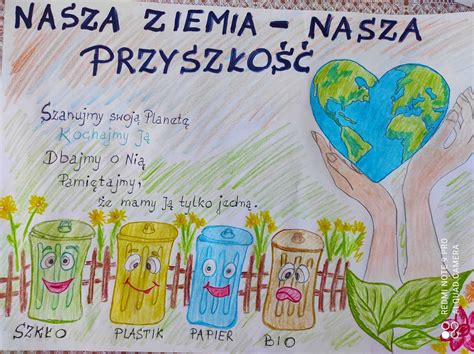 NASZA ZIEMIA – NASZA
PRZYSZŁOŚĆ
Szanujmy swoją Planetę
Kochajmy Ją
Dbajmy o Nią
Pamiętajmy,
że mamy Ją tylko jedną.
SZKŁO
PLASTIK
PAPIER
BIO
REDMI NOTE 9 PRO
AI QUAD CAMERA